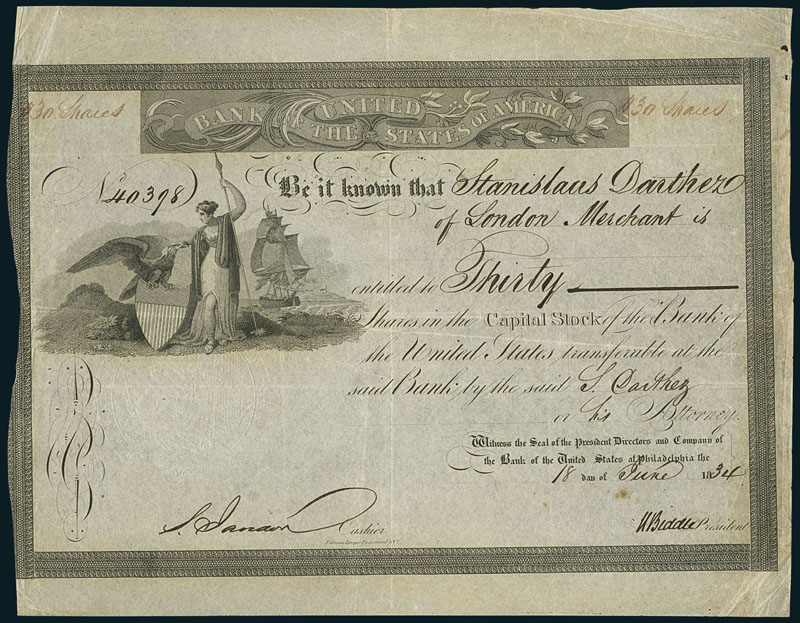 830 Shares
BANK OF THE UNITED STATES OF AMERICA
830 Shares
No 40398
Be it known that Stanislaus Darthez
of London Merchant is
entitled to Thirty
Shares in the Capital Stock of the Bank of
the United States transferable at the
said Bank by the said S. Darthez
or his Attorney.
Witness the Seal of the President Directors and Company of
the Bank of the United States at Philadelphia the
18 day of June 1834
S. Jaudon Cashier
N Biddle President